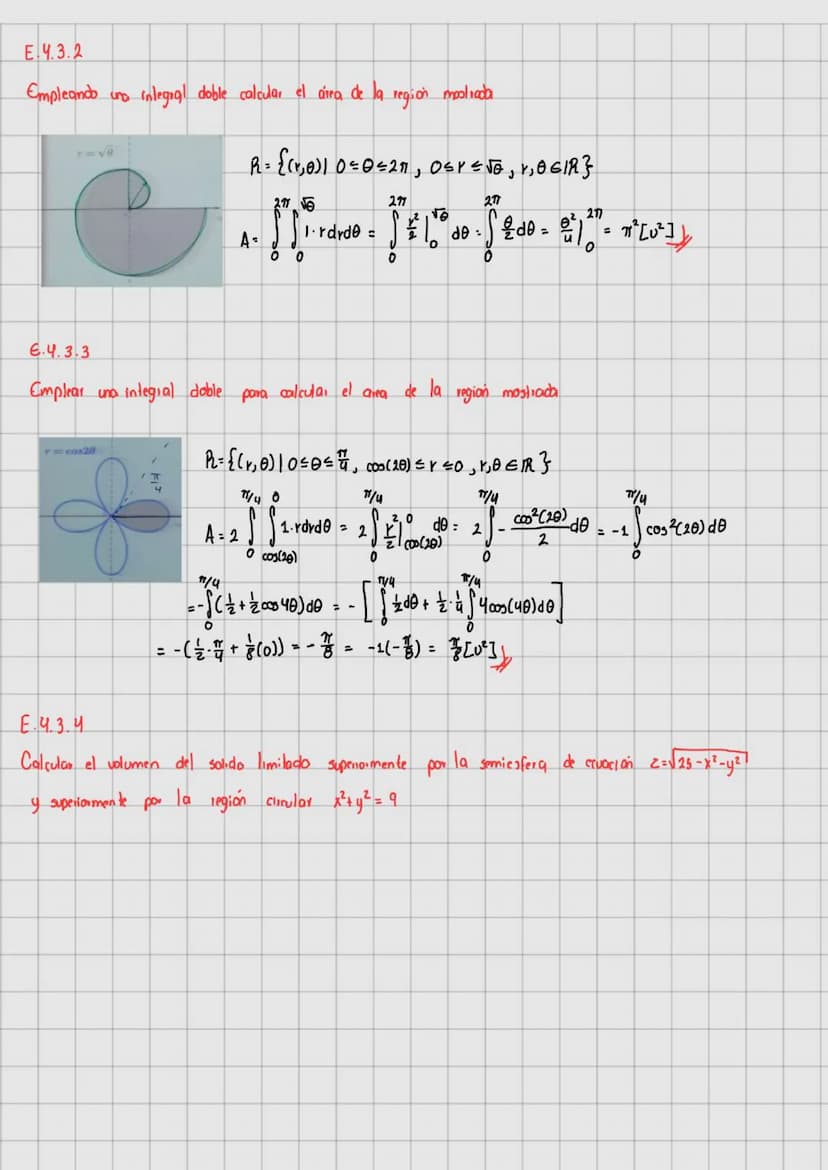 E.4.3.2
Empleando una integral doble calcular el área de la región mostrada
r = √θ
R = {(r,θ) | 0 ≤ θ ≤ 2π , 0 ≤ r ≤ √θ , r,θ ∈ ℝ}
A = ∫₀^{2π} ∫₀^{√θ} 1·r dr dθ = ∫₀^{2π} r²/2 |₀^{√θ} dθ = ∫₀^{2π} θ/2 dθ = θ²/4 |₀^{2π} = π² [u²]
E.4.3.3
Emplear una integral doble para calcular el area de la región mostrada
r = cos2θ
π/4
R = {(r,θ) | 0 ≤ θ ≤ π/4 , cos(2θ) ≤ r ≤ 0 , r,θ ∈ ℝ}
A = 2 ∫₀^{π/4} ∫_{cos(2θ)}^0 1·r dr dθ = 2 ∫₀^{π/4} r²/2 |_{cos(2θ)}^0 dθ = 2 ∫₀^{π/4} - cos²(2θ)/2 dθ = -1 ∫₀^{π/4} cos²(2θ) dθ
= - ∫₀^{π/4} (1/2 + 1/2 cos 4θ) dθ = - [ ∫₀^{π/4} 1/2 dθ + 1/2 · 1/4 ∫₀^{π/4} 4cos(4θ) dθ ]
= -(1/2 · π/4 + 1/8 (0)) = - π/8 = -1(-π/8) = π/8 [u²]
E.4.3.4
Calcular el volumen del solido limitado superiormente por la semiesfera de ecuación z = √(25 - x² - y²)
y superiormente por la región circular x² + y² = 9